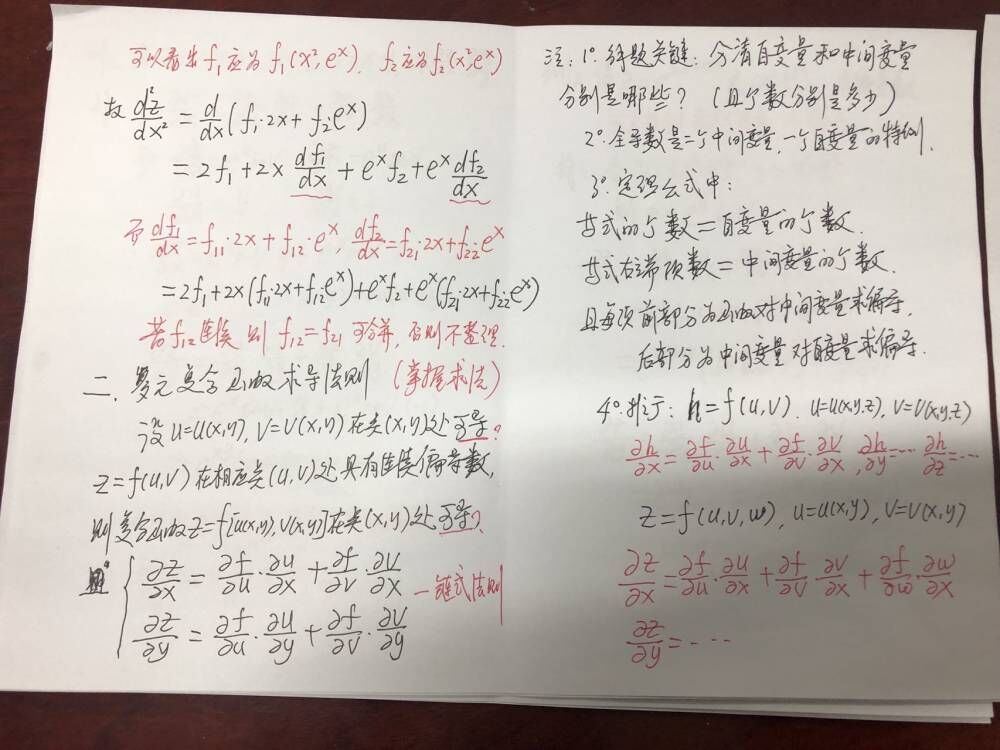 可以看出 f₁应为 f₁(x²,eˣ). f₂应为f₂(x²,eˣ)
故 d²z/dx² = d/dx(f₁·2x + f₂eˣ)
= 2f₁ + 2x df₁/dx + eˣf₂ + eˣ df₂/dx
而 df₁/dx = f₁₁·2x + f₁₂·eˣ, df₂/dx = f₂₁·2x + f₂₂eˣ
= 2f₁ + 2x(f₁₁·2x + f₁₂eˣ) + eˣf₂ + eˣ(f₂₁·2x + f₂₂eˣ)
若 f₁₂连续 则 f₁₂ = f₂₁ 可合并, 否则不整理.
二、多元复合函数求导法则 (掌握求法)
设 u=u(x,y), v=v(x,y) 在点(x,y)处可导?
z=f(u,v) 在相应点(u,v)处具有连续偏导数,
则复合函数z=f[u(x,y),v(x,y)]在点(x,y)处可导?
且 ∂z/∂x = ∂f/∂u·∂u/∂x + ∂f/∂v·∂v/∂x —链式法则
∂z/∂y = ∂f/∂u·∂u/∂y + ∂f/∂v·∂v/∂y
注: 1° 解题关键: 分清自变量和中间变量
分别是哪些? (且个数分别是多少)
2° 全导数是二个中间变量,一个自变量的特例.
3° 定理公式中:
公式的个数=自变量的个数.
公式右端项数=中间变量的个数.
且每项前部分为函数对中间变量求偏导,
后部分为中间变量对自变量求偏导.
4° 推广: h=f(u,v). u=u(x,y,z), v=v(x,y,z)
∂h/∂x = ∂f/∂u·∂u/∂x + ∂f/∂v·∂v/∂x, ∂h/∂y=… ∂h/∂z=…
z=f(u,v,w), u=u(x,y), v=v(x,y)
∂z/∂x = ∂f/∂u·∂u/∂x + ∂f/∂v·∂v/∂x + ∂f/∂w·∂w/∂x
∂z/∂y = ----